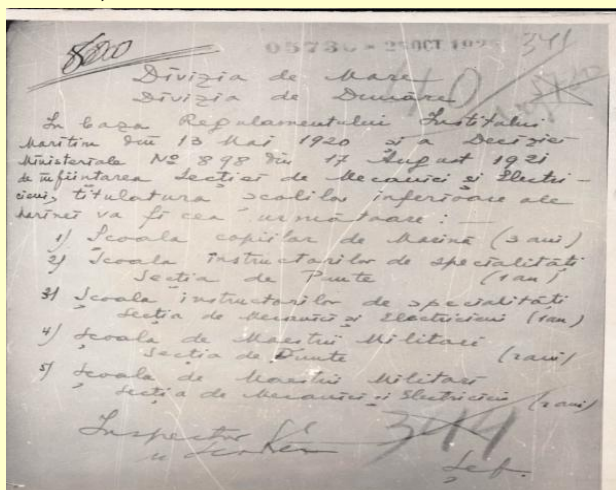 8620
05736 - 25 OCT 192
341
Divizia de Mare
40
Divizia de Dunăre
In baza Regulamentului Institului
Maritim din 13 Mai 1920 și a Deciziei
Ministeriale Nº 898 din 17 August 1921
de înființarea Secției de Mecanici și Electri-
cieni, titulatura școlilor inferioare ale
Marinei va fi cea următoare: —
1) Școala copiilor de Marină (3 ani)
2) Școala instructorilor de specialități
Secția de Punte (1 an)
3) Școala instructorilor de specialități
Secția de Mecanici și Electricieni (1 an)
4) Școala de Maeștrii Militari
Secția de Punte (2 ani)
5) Școala de Maeștrii Militari
Secția de Mecanici și Electricieni (2 ani)
Inspector
344
Șef.